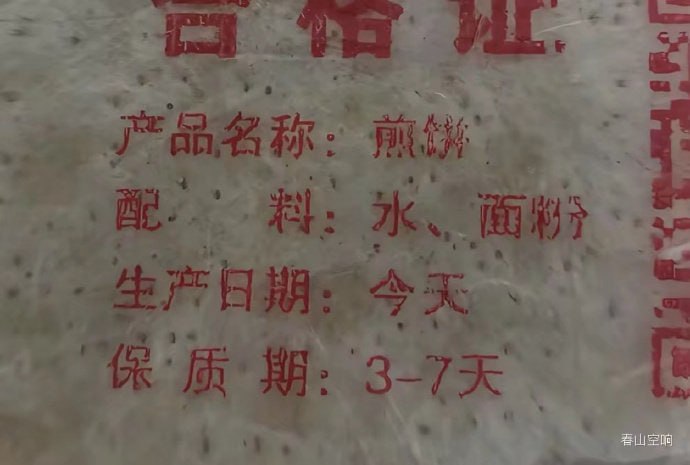 合格证
产品名称：煎饼
配 料：水、面粉
生产日期：今天
保 质 期：3-7天
春山空响